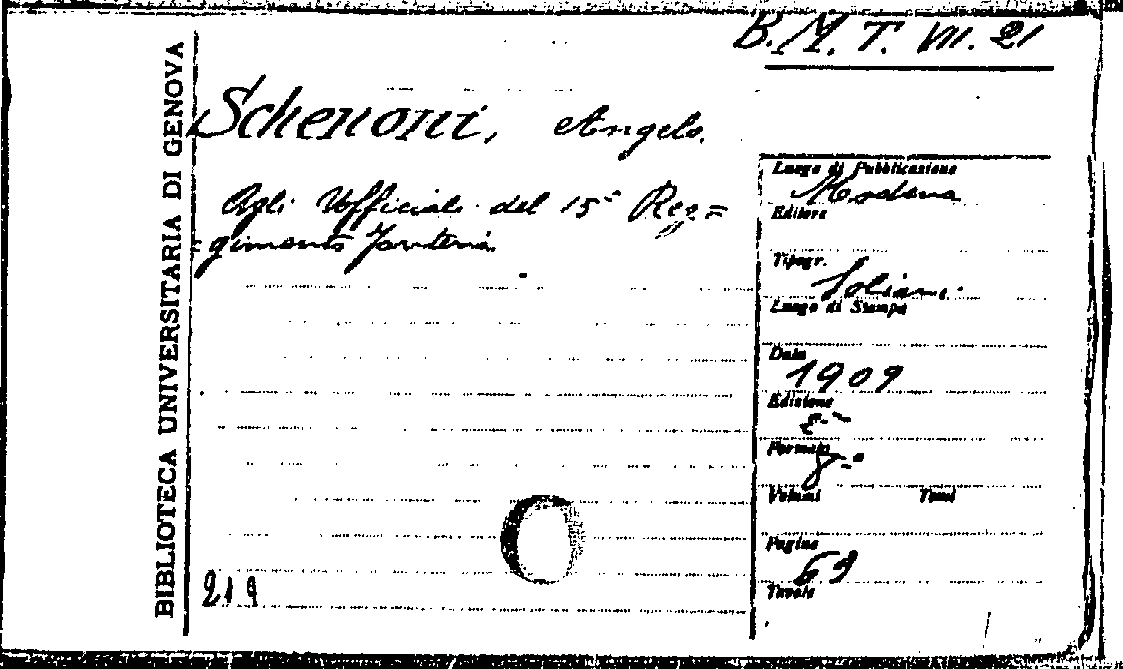 B. M. T. VII. 21
BIBLIOTECA UNIVERSITARIA DI GENOVA
Schenoni, Angelo.
Agli Ufficiali del 15° Reg=
gimento Fanteria.
Luogo di Pubblicazione
Modena
Editore
Tipogr.
Soliani
Luogo di Stampa
Data
1909
Edizione
Formato
8°
Volumi Tomi
Pagine
69
Tavole
219